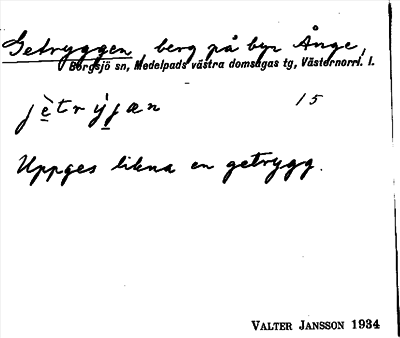 Getryggen, berg på byn Ånge,
Borgsjö sn, Medelpads västra domsagas tg, Västernorrl. l.
jètrẏjæn 15
Uppges likna en getrygg.
VALTER JANSSON 1934